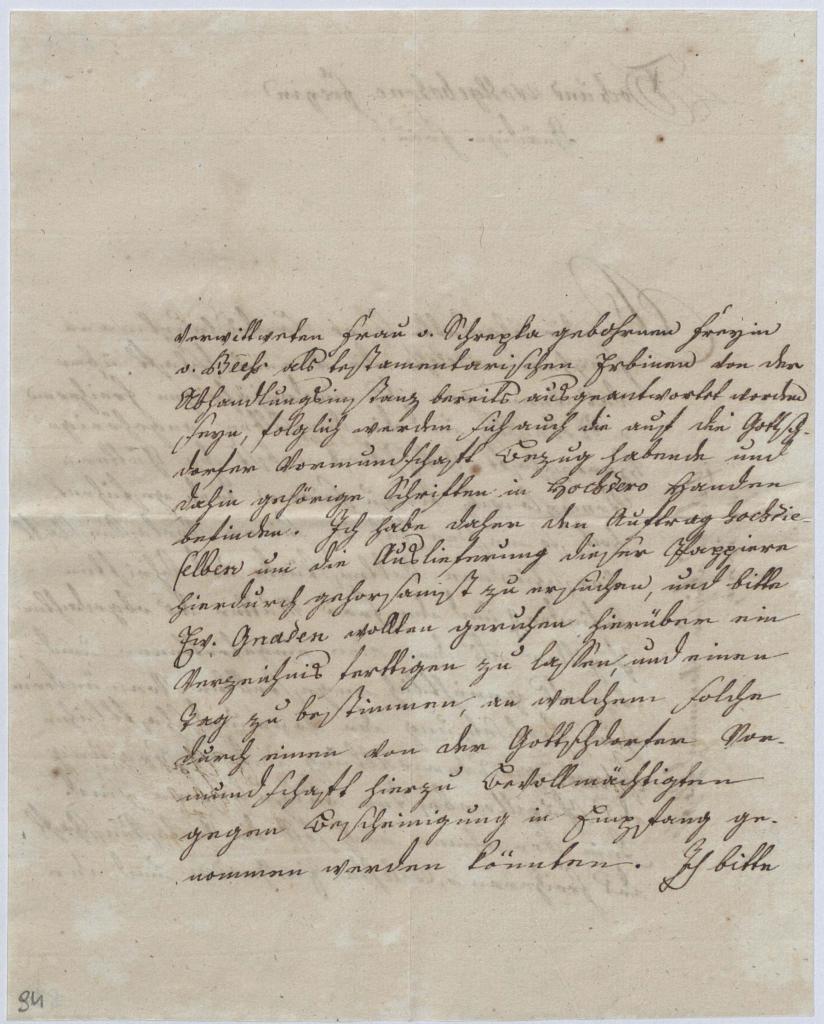 verwittweten Frau v. Schrepka gebohrnen Freyin
v. Beeß als testamentarischen Erbinen von der
Abhandlungsinstanz bereits ausgeantwortet worden
seyn, folglich werden sich auch die auf die Gottsch-
dorfer Vormundschaft Bezug habende und
dahin gehörige Schriften in Hochdero Handen
befinden. Ich habe daher den Auftrag Hochdie-
selben um die Auslieferung dieser Pappiere
hierdurch gehorsamst zu ersuchen, und bitte
Ew. Gnaden wollten geruhen hierüber ein
Verzeichnis ferttigen zu lassen, und einen
Tag zu bestimmen, an welchem solche
durch einen von der Gottschdorfer Vor-
mundschaft hierzu Bevollmächtigten
gegen Bescheinigung in Empfang ge-
nommen werden könnten. Ich bitte
94